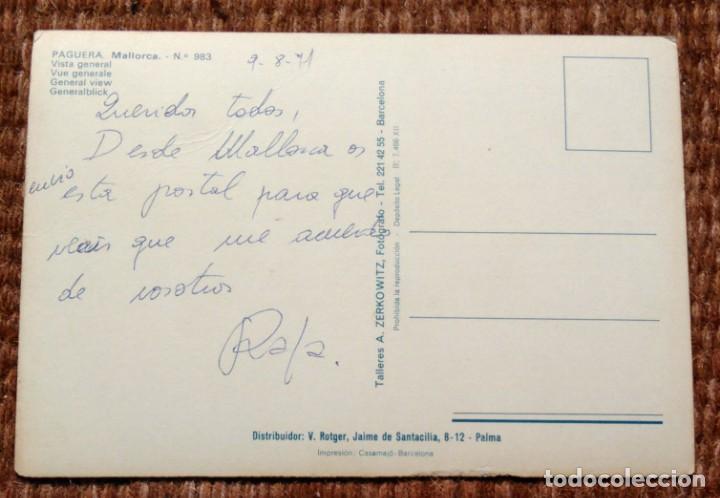 PAGUERA. Mallorca. - N.º 983
Vista general
Vue generale
General view
Generalblick
9-8-71
Queridos todos,
Desde Mallorca os
envío
esta postal para que
veais que me acuerdo
de vosotros
Rafa.
Talleres A. ZERKOWITZ, Fotógrafo - Tel. 221 42 55 - Barcelona
Prohibida la reproducción - Depósito Legal B. 7.466 XII
Distribuidor: V. Rotger, Jaime de Santacilia, 8-12 - Palma
Impresión: Casamajó-Barcelona
todocoleccion